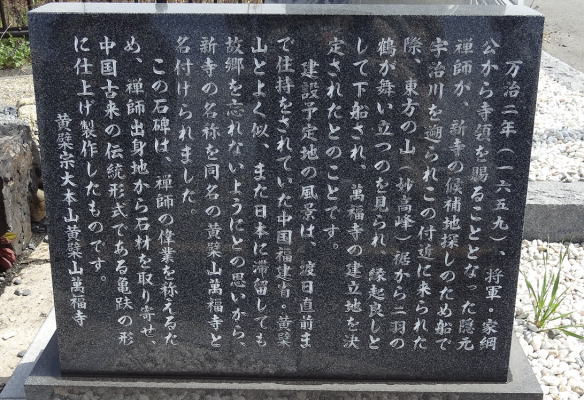 万治二年（一六五九）、将軍・家綱
公から寺領を賜ることとなった隠元
禅師が、新寺の候補地探しのため船で
宇治川を遡られこの付近に来られた
際、東方の山（妙高峰）裾から二羽の
鶴が舞い立つのを見られ、縁起良しと
して下船され、萬福寺の建立地を決
定されたとのことです。
建設予定地の風景は、渡日直前ま
で住持をされていた中国福建省・黄檗
山とよく似、また日本に滞留しても
故郷を忘れないようにとの思いから、
新寺の名称を同名の黄檗山萬福寺と
名付けられました。
この石碑は、禅師の偉業を称えるた
め、禅師出身地から石材を取り寄せ、
中国古来の伝統形式である亀趺の形
に仕上げ製作したものです。
黄檗宗大本山黄檗山萬福寺